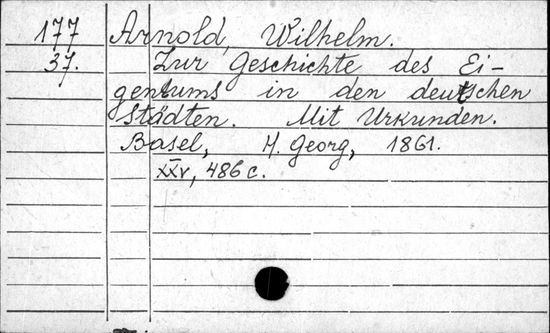 177 Arnold, Wilhelm.
37. Zur Geschichte des Ei-
gentums in den deutschen
Städten. Mit Urkunden.
Basel, H. Georg, 1861.
XXV, 486 c.